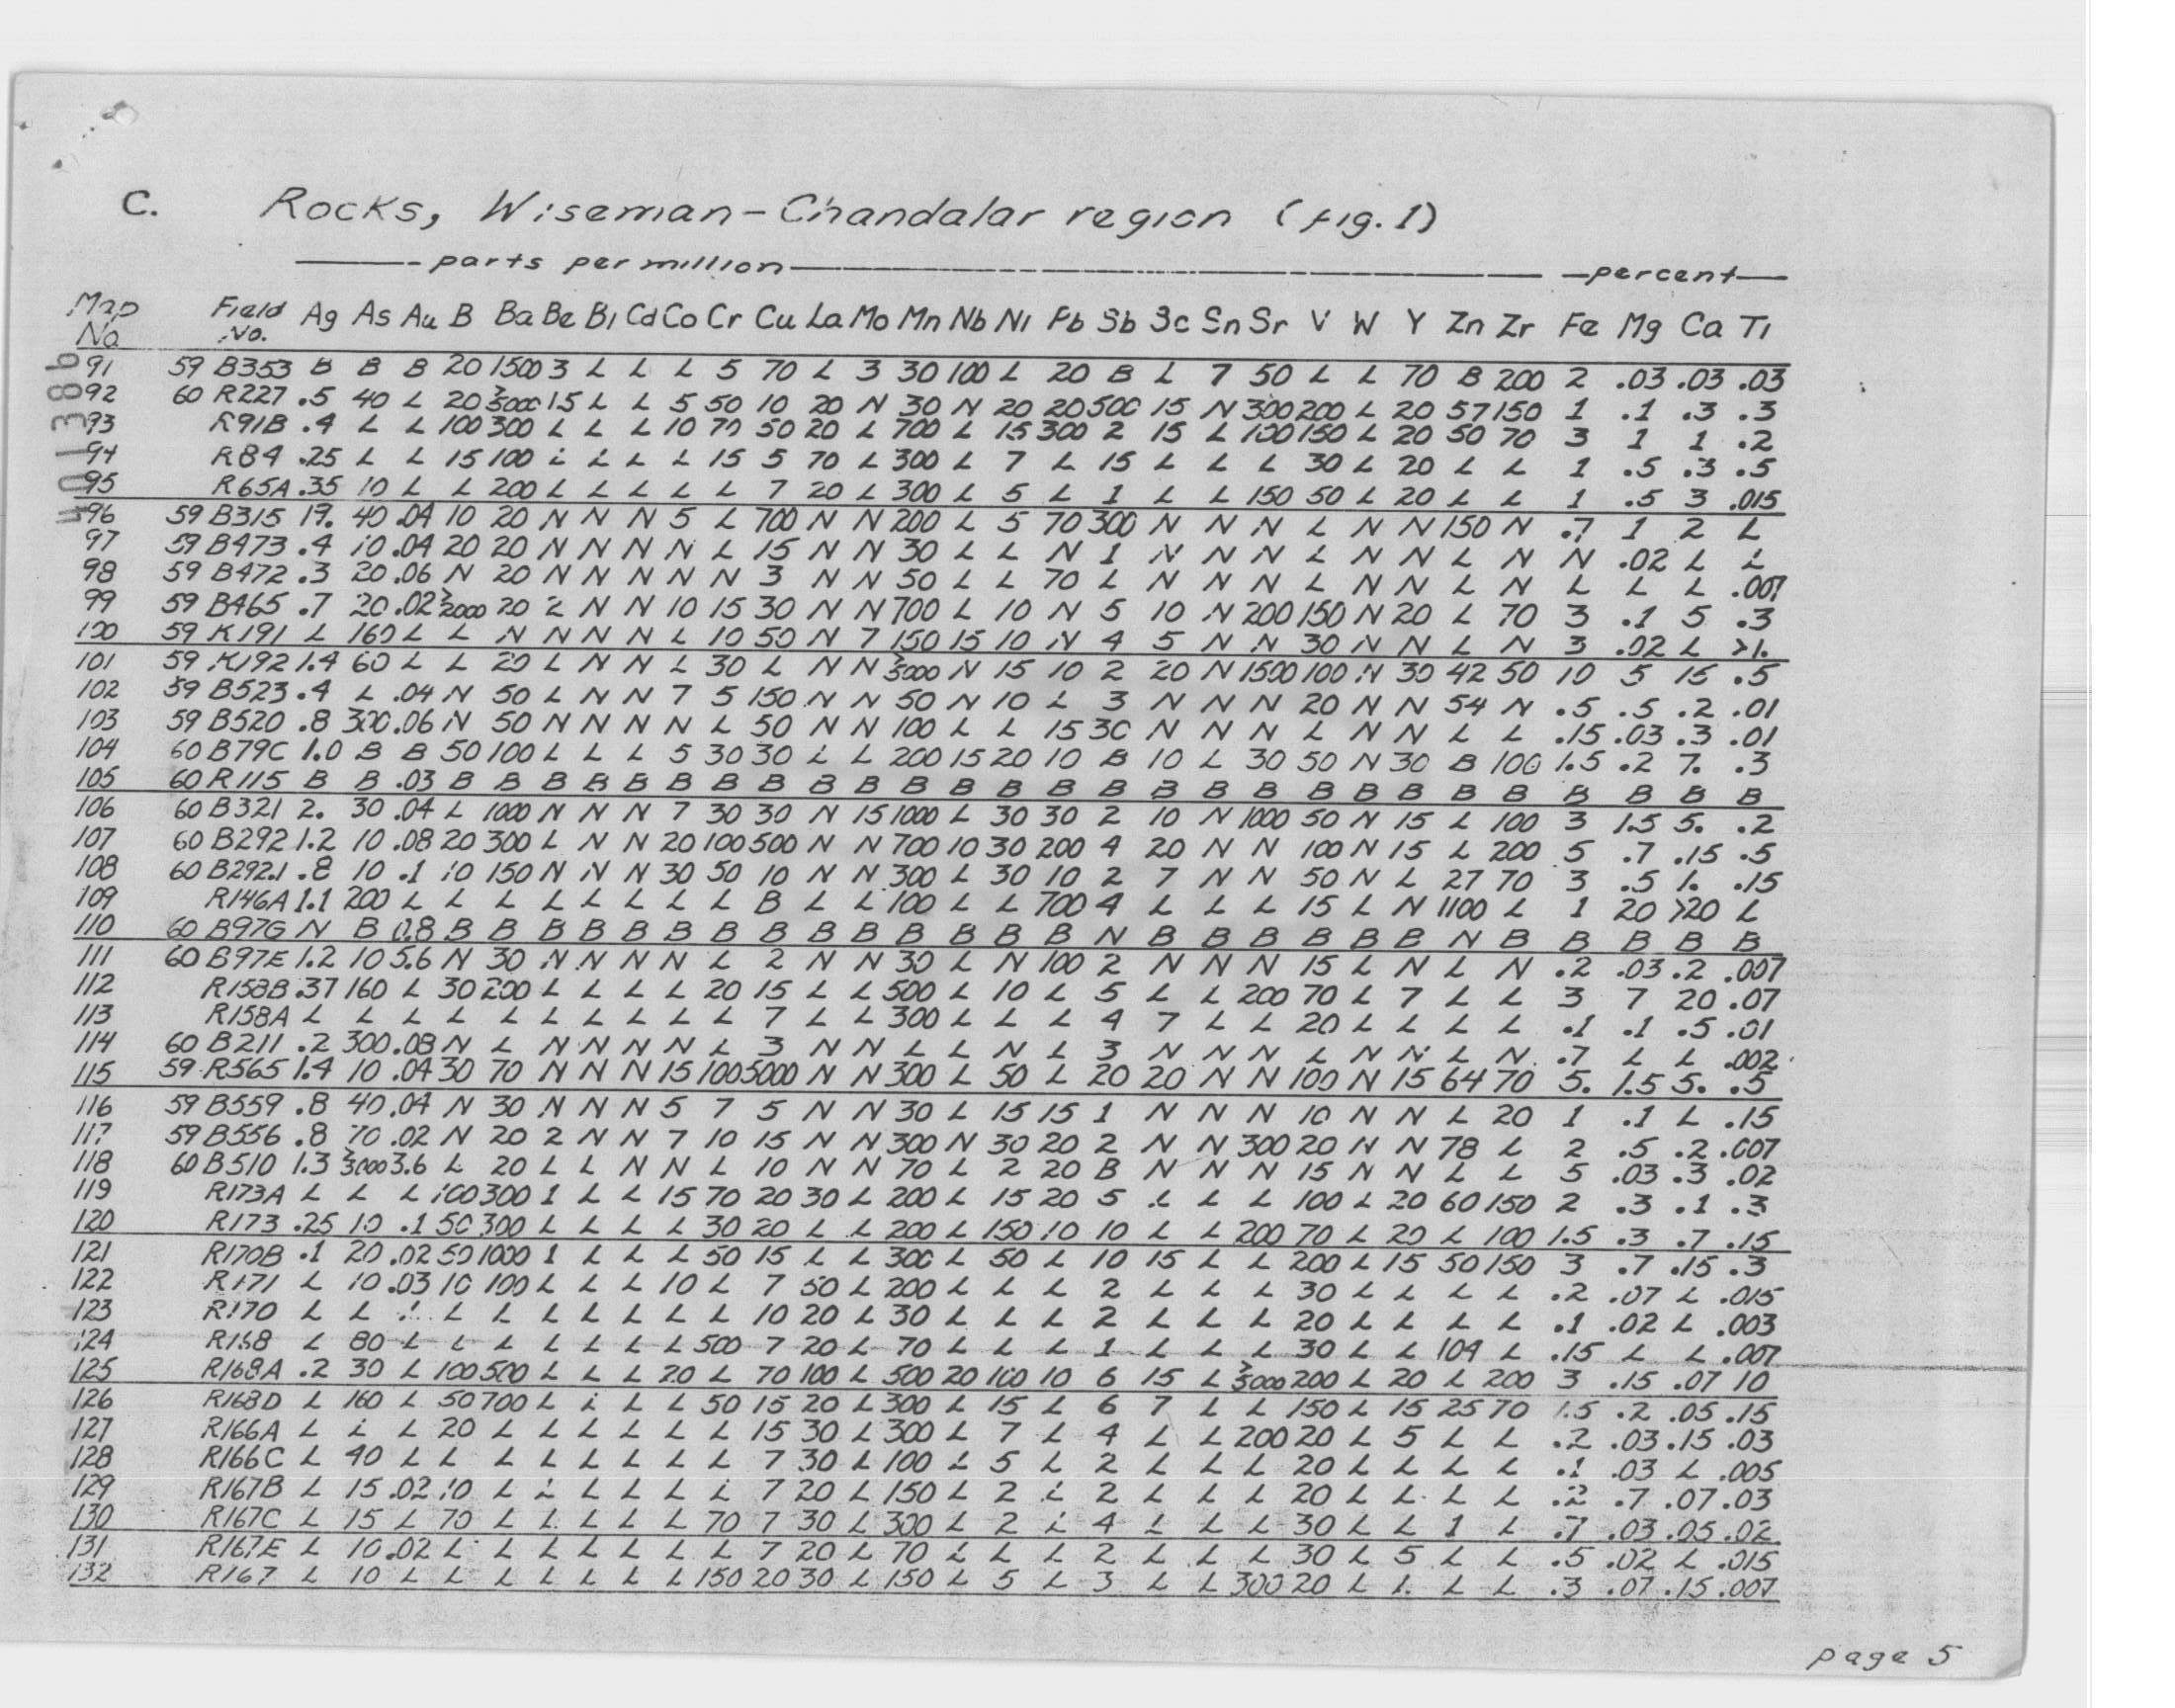 C. Rocks, Wiseman-Chandalar region (fig. 1)
parts per million percent
Map No. Field No. Ag As Au B Ba Be Bi Cd Co Cr Cu La Mo Mn Nb Ni Pb Sb Sc Sn Sr V W Y Zn Zr Fe Mg Ca Ti
401386
91 59 B353 B B B 20 1500 3 L L L 5 70 L 3 30 100 L 20 B L 7 50 L L 70 B 200 2 .03 .03 .03
92 60 R227 .5 40 L 20 >5000 15 L L 5 50 10 20 N 30 N 20 20 500 15 N 300 200 L 20 57 150 1 .1 .3 .3
93 R91B .4 L L 100 300 L L L 10 70 50 20 L 700 L 15 300 2 15 L 100 150 L 20 50 70 3 1 1 .2
94 R84 .25 L L 15 100 L L L L 15 5 70 L 300 L 7 L 15 L L L 30 L 20 L L 1 .5 .3 .5
95 R65A .35 10 L L 200 L L L L L 7 20 L 300 L 5 L 1 L L 150 50 L 20 L L 1 .5 3 .015
96 59 B315 17. 40 .04 10 20 N N N 5 L 700 N N 200 L 5 70 300 N N N L N N 150 N .7 1 2 L
97 59 B473 .4 10 .04 20 20 N N N N L 15 N N 30 L L N 1 N N N L N N L N N .02 L L
98 59 B472 .3 20 .06 N 20 N N N N N 3 N N 50 L L 70 L N N N L N N L N L L L .007
99 59 B465 .7 20 .02 >2000 20 2 N N 10 15 30 N N 700 L 10 N 5 10 N 200 150 N 20 L 70 3 .1 5 .3
100 59 K191 L 160 L L N N N N L 10 50 N 7 150 15 10 N 4 5 N N 30 N N L N 3 .02 L >1.
101 59 K192 1.4 60 L L 20 L N N L 30 L N N >5000 N 15 10 2 20 N 1500 100 N 30 42 50 10 5 15 .5
102 59 B523 .4 L .04 N 50 L N N 7 5 150 N N 50 N 10 L 3 N N N 20 N N 54 N .5 .5 .2 .01
103 59 B520 .8 300 .06 N 50 N N N N L 50 N N 100 L L 15 30 N N N L N N L L .15 .03 .3 .01
104 60 B79C 1.0 B B 50 100 L L L 5 30 30 L L 200 15 20 10 B 10 L 30 50 N 30 B 100 1.5 .2 7. .3
105 60 R115 B B .03 B B B B B B B B B B B B B B B B B B B B B B B B B B B
106 60 B321 2. 30 .04 L 1000 N N N 7 30 30 N 15 1000 L 30 30 2 10 N 1000 50 N 15 L 100 3 1.5 5. .2
107 60 B292 1.2 10 .08 20 300 L N N 20 100 500 N N 700 10 30 200 4 20 N N 100 N 15 L 200 5 .7 .15 .5
108 60 B292.1 .8 10 .1 10 150 N N N 30 50 10 N N 300 L 30 10 2 7 N N 50 N L 27 70 3 .5 1. .15
109 R146A 1.1 200 L L L L L L L L B L L 100 L L 700 4 L L L 15 L N 1100 L 1 20 >20 L
110 60 B97G N B 0.8 B B B B B B B B B B B B B B N B B B B B B N B B B B B
111 60 B97E 1.2 10 5.6 N 30 N N N N L 2 N N 30 L N 100 2 N N N 15 L N L N .2 .03 .2 .007
112 R158B .37 160 L 30 200 L L L L 20 15 L L 500 L 10 L 5 L L 200 70 L 7 L L 3 7 20 .07
113 R158A L L L L L L L L L L 7 L L 300 L L L 4 7 L L 20 L L L L .1 .1 .5 .01
114 60 B211 .2 300 .08 N L N N N N L 3 N N L L N L 3 N N N L N N L N .7 L L .002
115 59 R565 1.4 10 .04 30 70 N N N 15 100 5000 N N 300 L 50 L 20 20 N N 100 N 15 64 70 5. 1.5 5. .5
116 59 B559 .8 40 .04 N 30 N N N 5 7 5 N N 30 L 15 15 1 N N N 10 N N L 20 1 .1 L .15
117 59 B556 .8 70 .02 N 20 2 N N 7 10 15 N N 300 N 30 20 2 N N 300 20 N N 78 L 2 .5 .2 .007
118 60 B510 1.3 >3000 3.6 L 20 L L N N L 10 N N 70 L 2 20 B N N N 15 N N L L 5 .03 .3 .02
119 R173A L L L 100 300 1 L L 15 70 20 30 L 200 L 15 20 5 L L L 100 L 20 60 150 2 .3 .1 .3
120 R173 .25 10 .1 50 300 L L L L 30 20 L L 200 L 150 10 10 L L 200 70 L 20 L 100 1.5 .3 .7 .15
121 R170B .1 20 .02 50 1000 1 L L L 50 15 L L 300 L 50 L 10 15 L L 200 L 15 50 150 3 .7 .15 .3
122 R171 L 10 .03 10 100 L L L 10 L 7 50 L 200 L L L 2 L L L 30 L L L L .2 .07 L .015
123 R170 L L L L L L L L L 10 20 L 30 L L L 2 L L L 20 L L L L .1 .02 L .003
124 R168 L 80 L L L L L L L 500 7 20 L 70 L L L 1 L L L 30 L L 104 L .15 L L .007
125 R168A .2 30 L 100 500 L L L 20 L 70 100 L 500 20 100 10 6 15 L >5000 200 L 20 L 200 3 .15 .07 10
126 R168D L 160 L 50 700 L L L L 50 15 20 L 300 L 15 L 6 7 L L 150 L 15 25 70 1.5 .2 .05 .15
127 R166A L L L 20 L L L L L L 15 30 L 300 L 7 L 4 L L 200 20 L 5 L L .2 .03 .15 .03
128 R166C L 40 L L L L L L L L 7 30 L 100 L 5 L 2 L L L 20 L L L L .1 .03 L .005
129 R167B L 15 .02 10 L L L L L L 7 20 L 150 L 2 L 2 L L L 20 L L L L .2 .7 .07 .03
130 R167C L 15 L 70 L L L L L 70 7 30 L 300 L 2 L 4 L L L 30 L L 1 L .7 .03 .05 .02
131 R167E L 10 .02 L L L L L L L 7 20 L 70 L L L 2 L L L 30 L 5 L L .5 .02 L .015
132 R167 L 10 L L L L L L L 150 20 30 L 150 L 5 L 3 L L 300 20 L 1. L L .3 .07 .15 .007
page 5